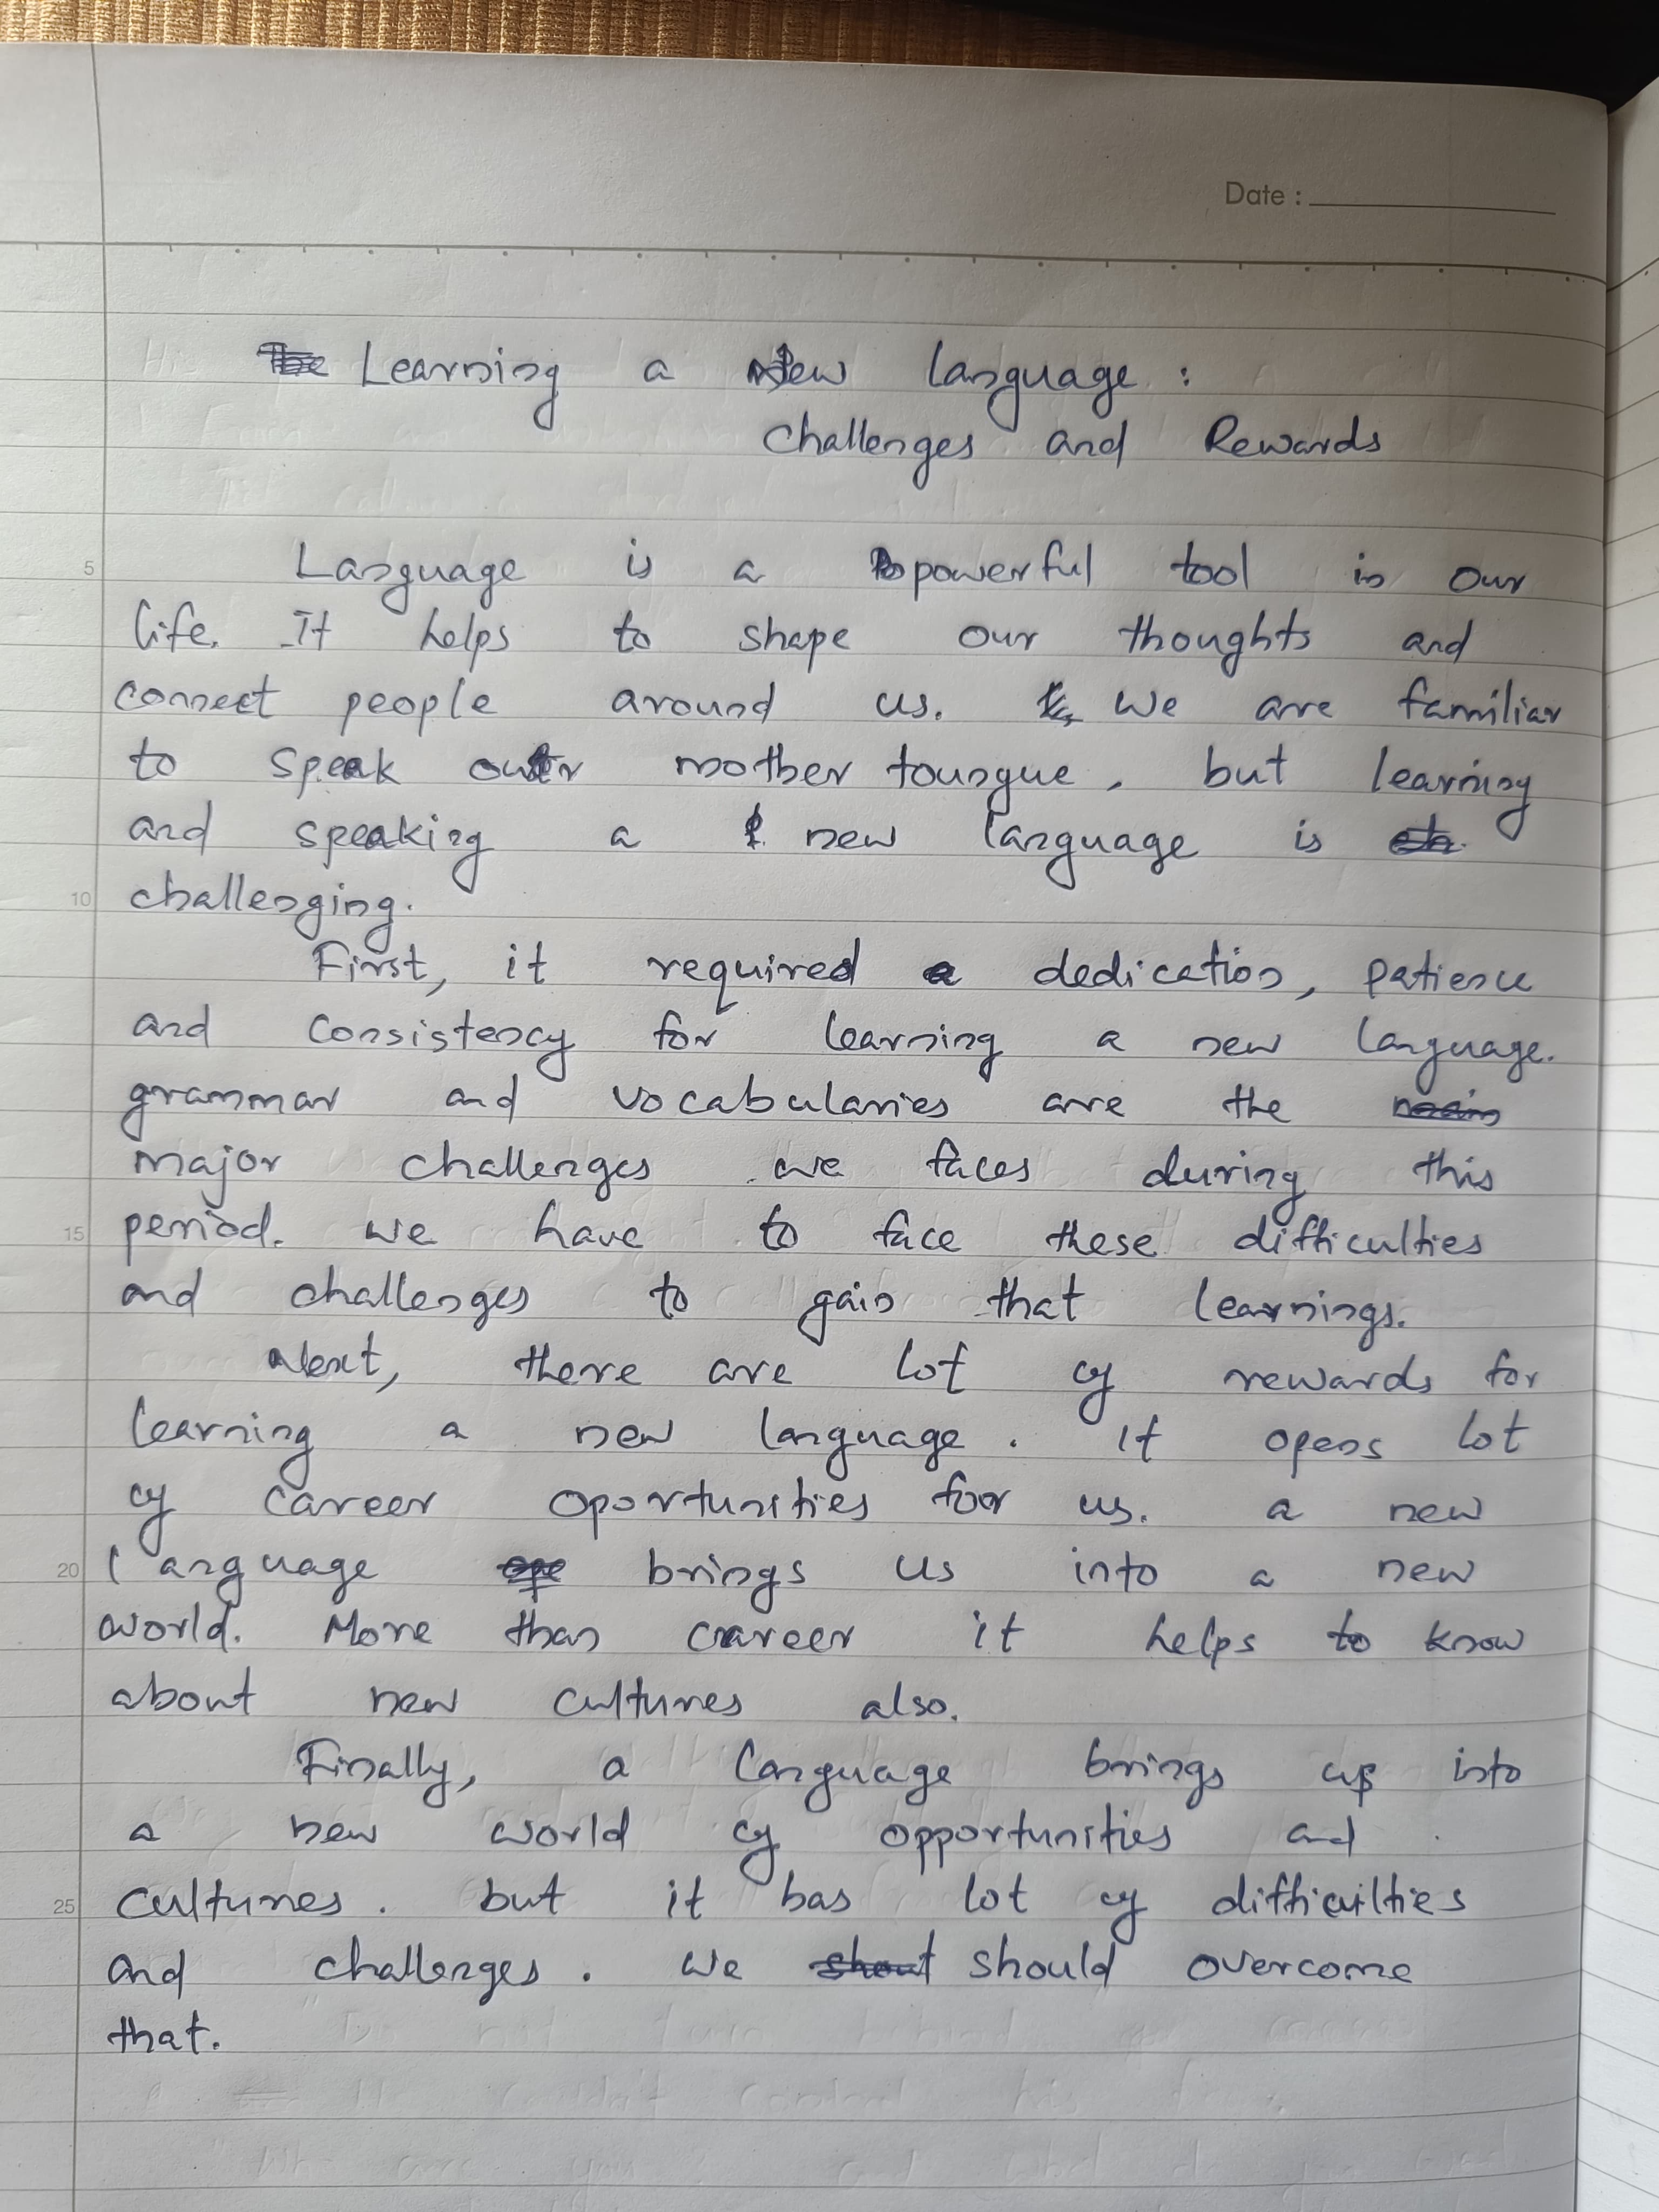 Date :
Learning a New language :
Challenges and Rewards
5
Language is a powerful tool in our
life. It helps to shape our thoughts and
connect people around us. We are familiar
to speak our mother toungue, but learning
and speaking a new language is
10
challenging.
First, it required a dedication, patience
and consistency for learning a new language.
grammar and vocabularies are the
major challenges we faces during this
15
period. we have to face these difficulties
and challenges to gain that learnings.
Next, there are lot of rewards for
learning a new language. It opens lot
of career oportunities for us. a new
20
language brings us into a new
world. More than career it helps to know
about new cultures also.
Finally, a language brings us into
a new world of opportunities and
25
cultures. but it has lot of difficulties
and challenges. We should overcome
that.